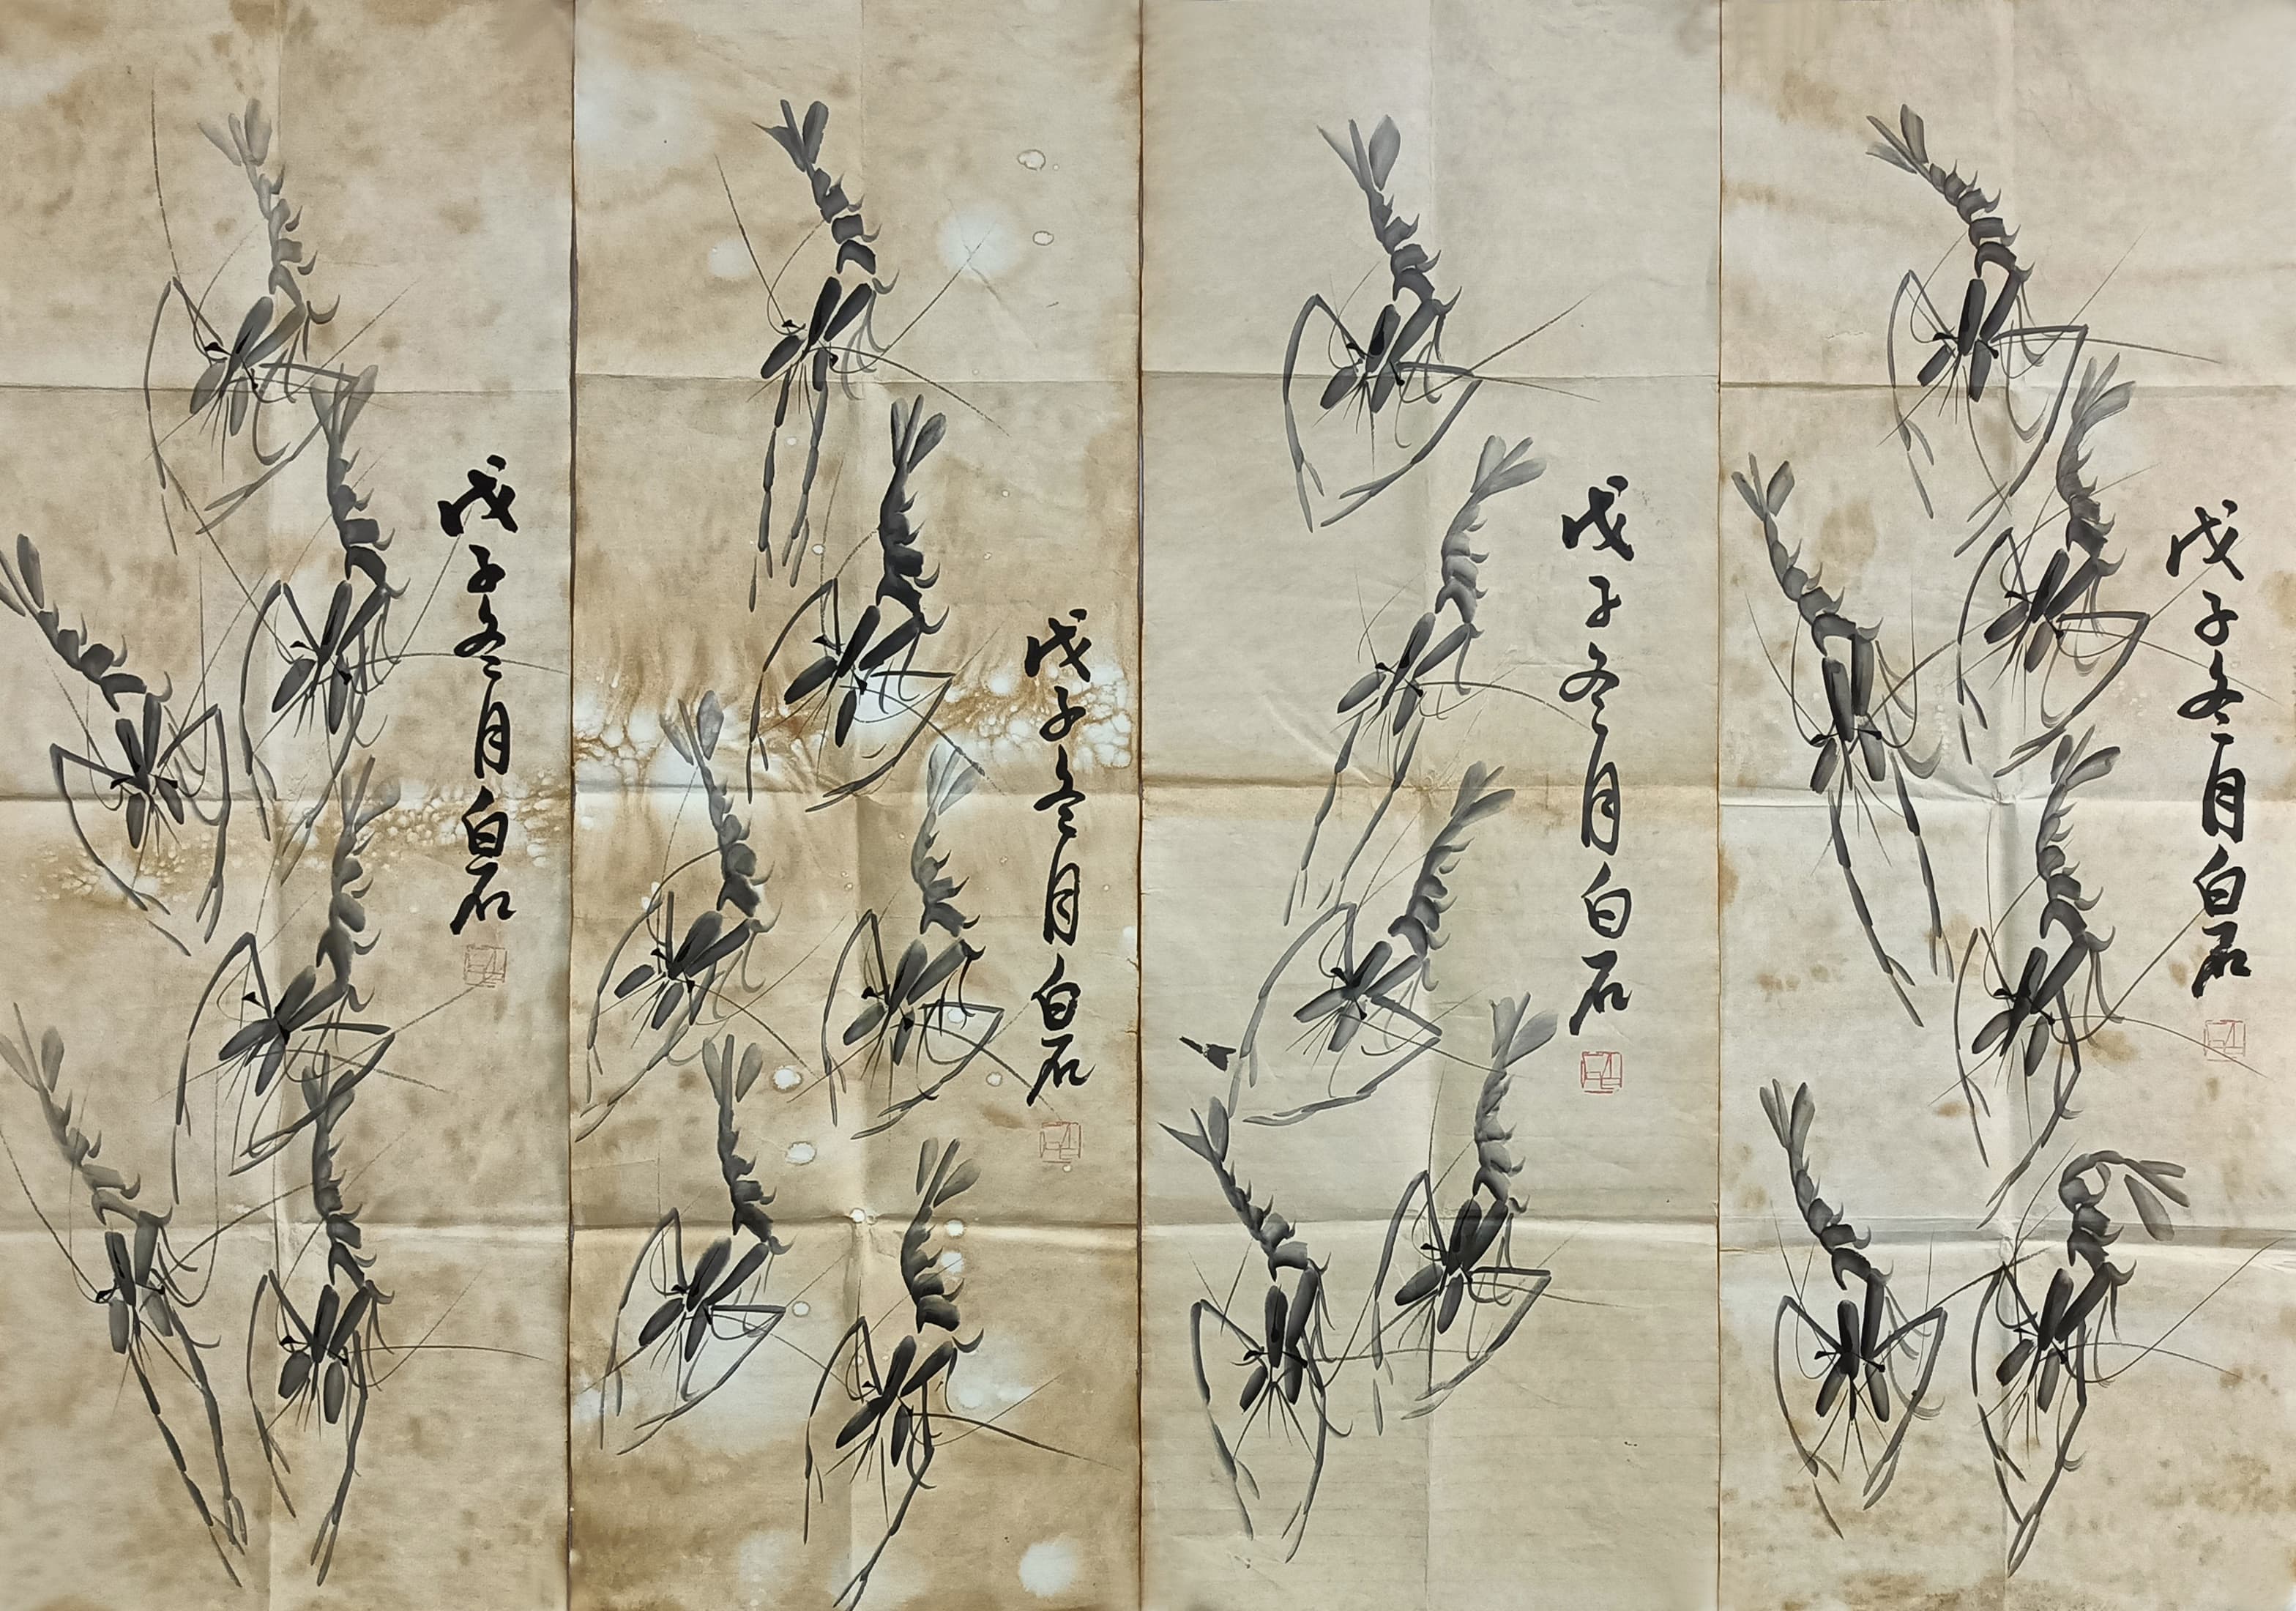 戊子冬月白石
戊子冬月白石
戊子冬月白石
戊子冬月白石